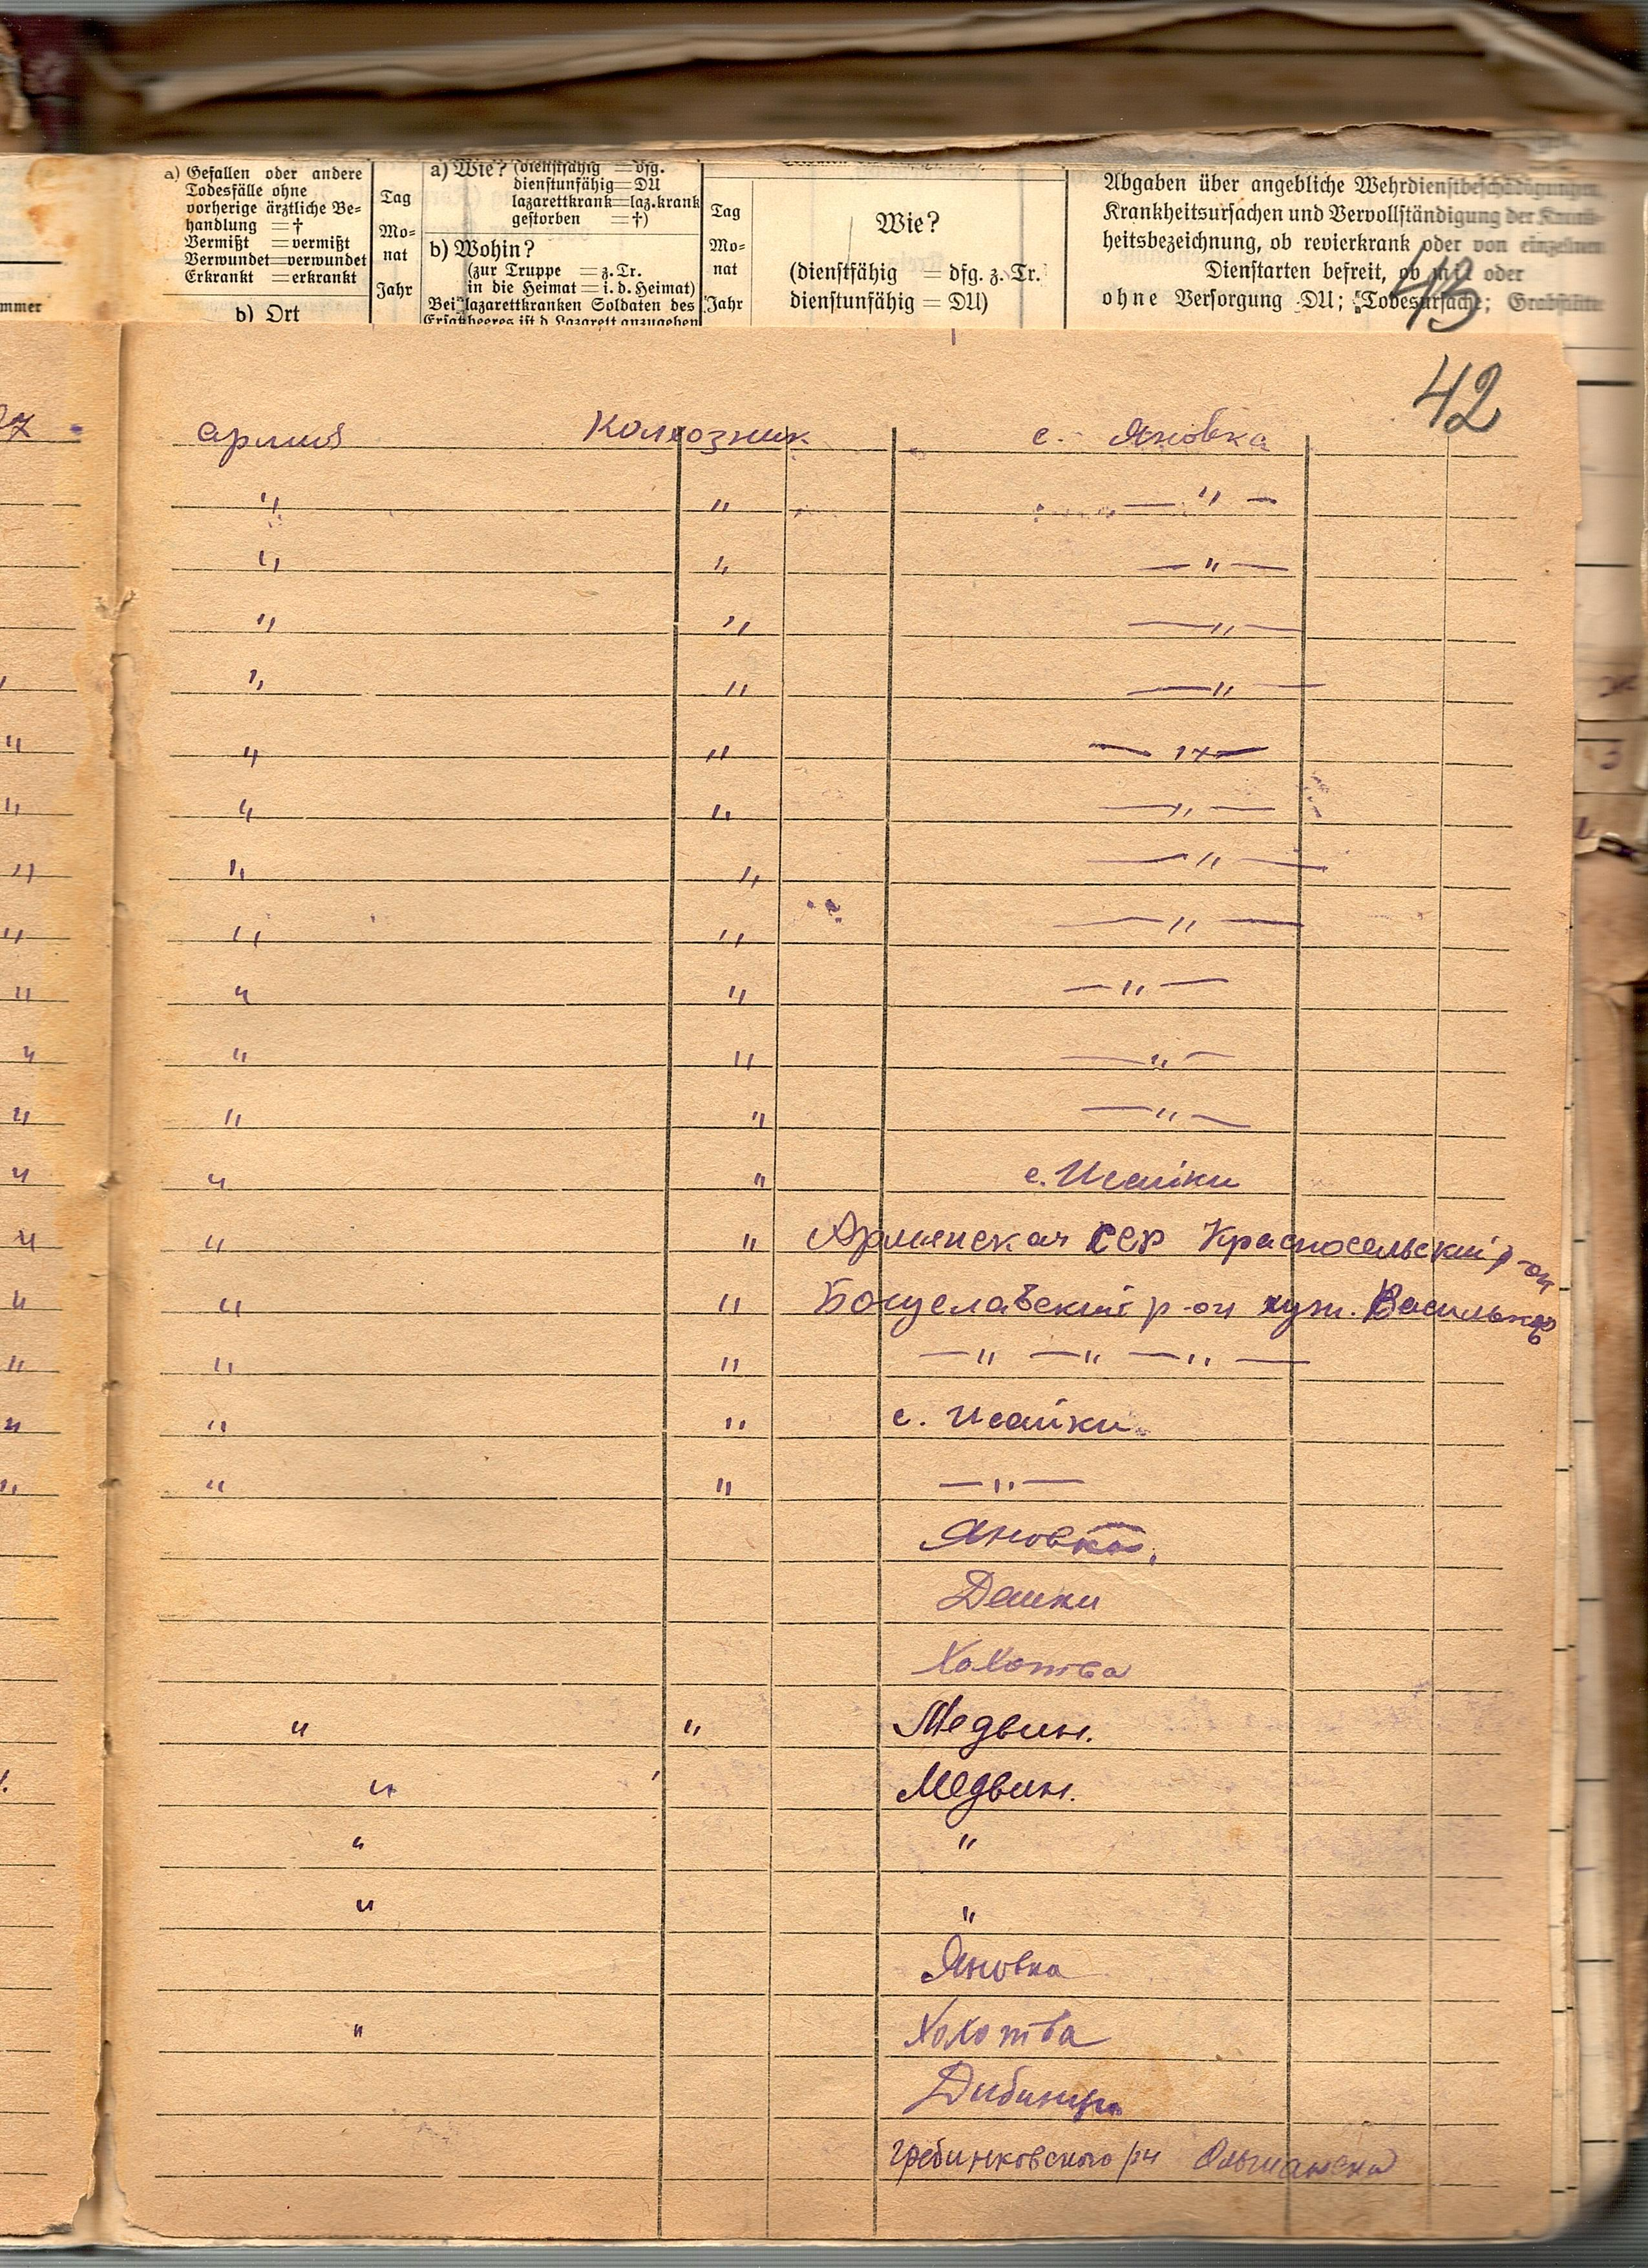 a) Gefallen oder andere
Todesfälle ohne
vorherige ärztliche Be-
handlung = †
Vermißt = vermißt
Verwundet = verwundet
Erkrankt = erkrankt
b) Ort
Tag
Mo-
nat
Jahr
a) Wie? (dienstfähig = dfg.
dienstunfähig = DU
lazarettkrank = laz.krank
gestorben = †)
b) Wohin?
(zur Truppe = z. Tr.
in die Heimat = i. d. Heimat)
Bei lazarettkranken Soldaten des
Ersatzheeres ist d. Lazarett anzugeben
Tag
Mo-
nat
Jahr
Wie?
(dienstfähig = dfg. z. Tr.
dienstunfähig = DU)
Abgaben über angebliche Wehrdienstbeschädigungen,
Krankheitsursachen und Vervollständigung der Krank-
heitsbezeichnung, ob revierkrank oder von einzelnen
Dienstarten befreit, ob mit oder
ohne Versorgung DU; Todesursache; Grabstätte
mmer
43
42
армия Колхозник с. Яновка
" " — " —
" " — " —
" " — " —
" " — " —
" " — " —
" " — " —
" " — " —
" " — " —
" " — " —
" " — " —
" " — " —
" " с. Исайки
" " Армянская ССР Красносельский р-он
" " Богуславский р-он хут. Васильков
" " — " — " — " —
" " с. Исайки
" " — " —
Яновка.
Дашки
Хохотва
" " Медвин.
" Медвин.
" "
" "
Яновка
" Хохотва
Дибинцы
Гребинковского р-н